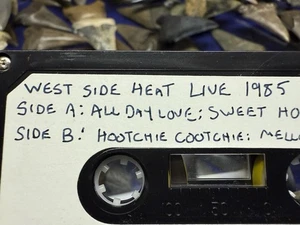 WEST SIDE HEAT LIVE 1985
SIDE A: ALL DAY LOVE; SWEET HO
SIDE B: HOOTCHIE COOTCHIE: MELL